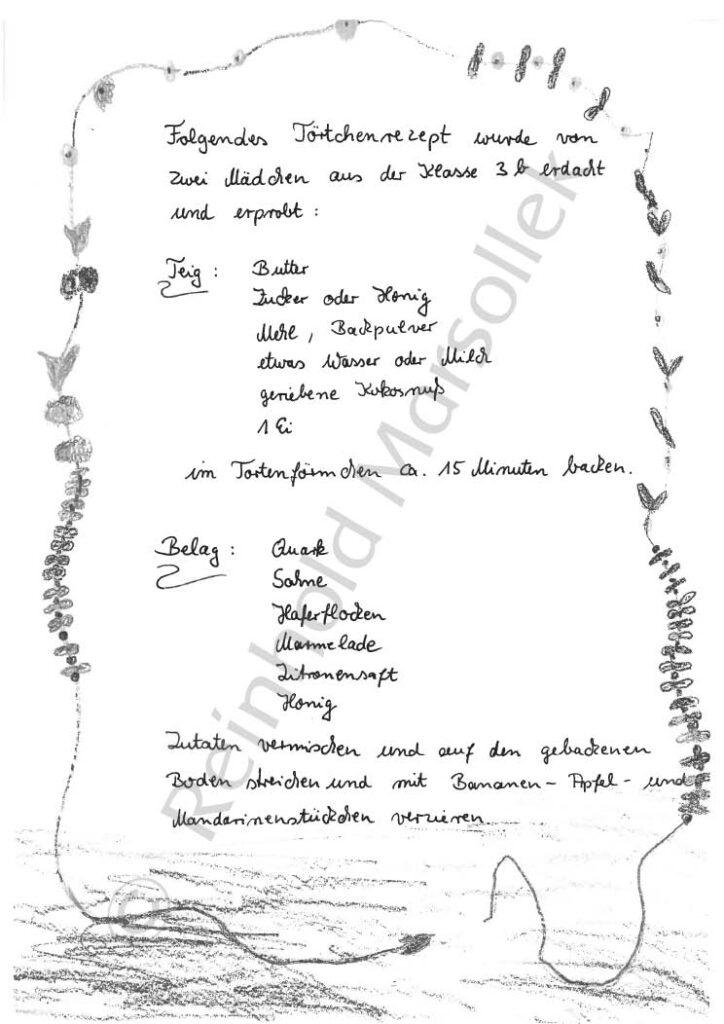 Folgendes Törtchenrezept wurde von
zwei Mädchen aus der Klasse 3b erdacht
und erprobt:
Teig: Butter
Zucker oder Honig
Mehl, Backpulver
etwas Wasser oder Milch
geriebene Kokosnuß
1 Ei
im Tortenförmchen ca. 15 Minuten backen.
Belag: Quark
Sahne
Haferflocken
Marmelade
Zitronensaft
Honig
Zutaten vermischen und auf den gebackenen
Boden streichen und mit Bananen- Apfel- und
Mandarinenstückchen verzieren.
© Reinhold Marsollek